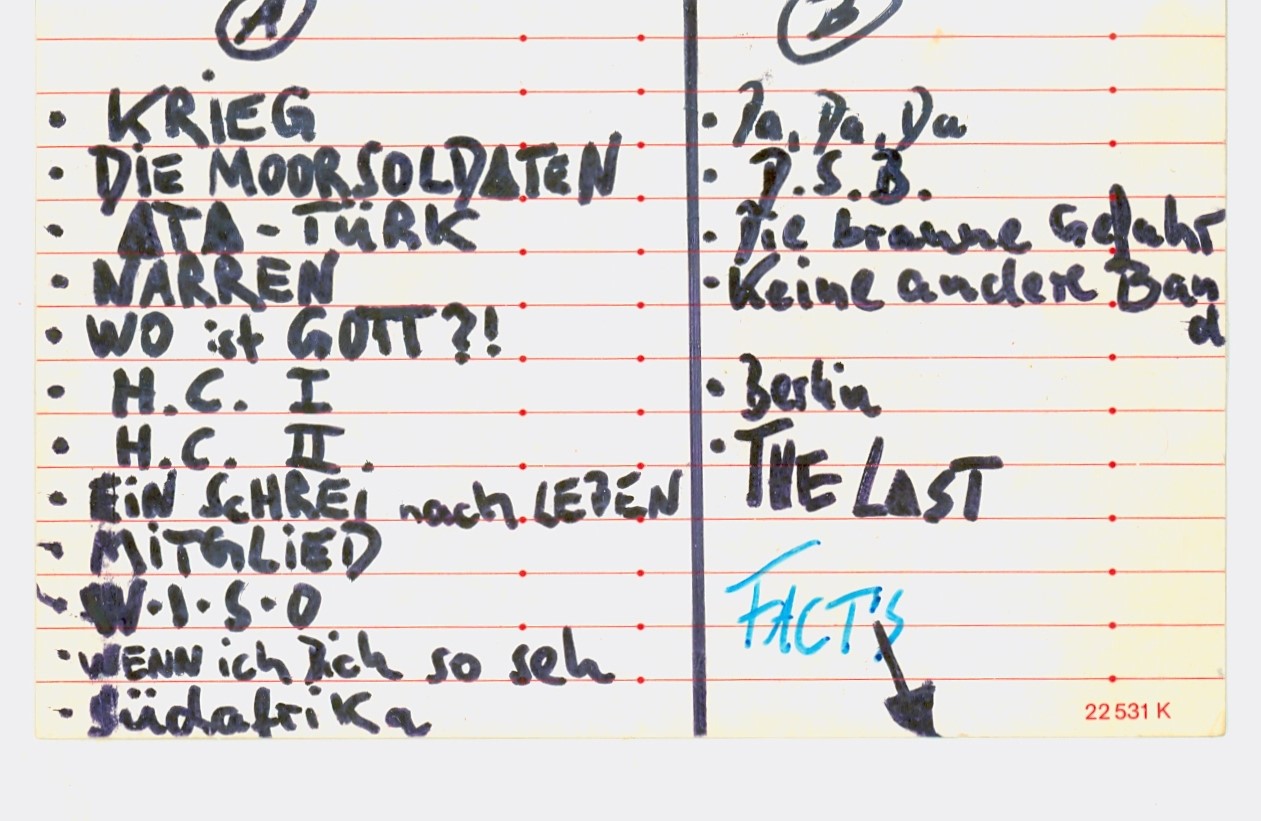 A
• KRiEG
• DiE MOORSOLDATEN
• ATA-TÜRK
• NARREN
• WO ist GOTT?!
• H.C. I
• H.C. II.
• EiN SCHREi nach LEBEN
• MiTGLiED
• W.I.S.O
• WENN ich Dich so seh
• Südafrika
B
• Da, Da, Da
• D.S.B.
• Die braune Gefahr
• Keine andere Ban
d
• Berlin
• THE LAST
FACT'S
22 531 K